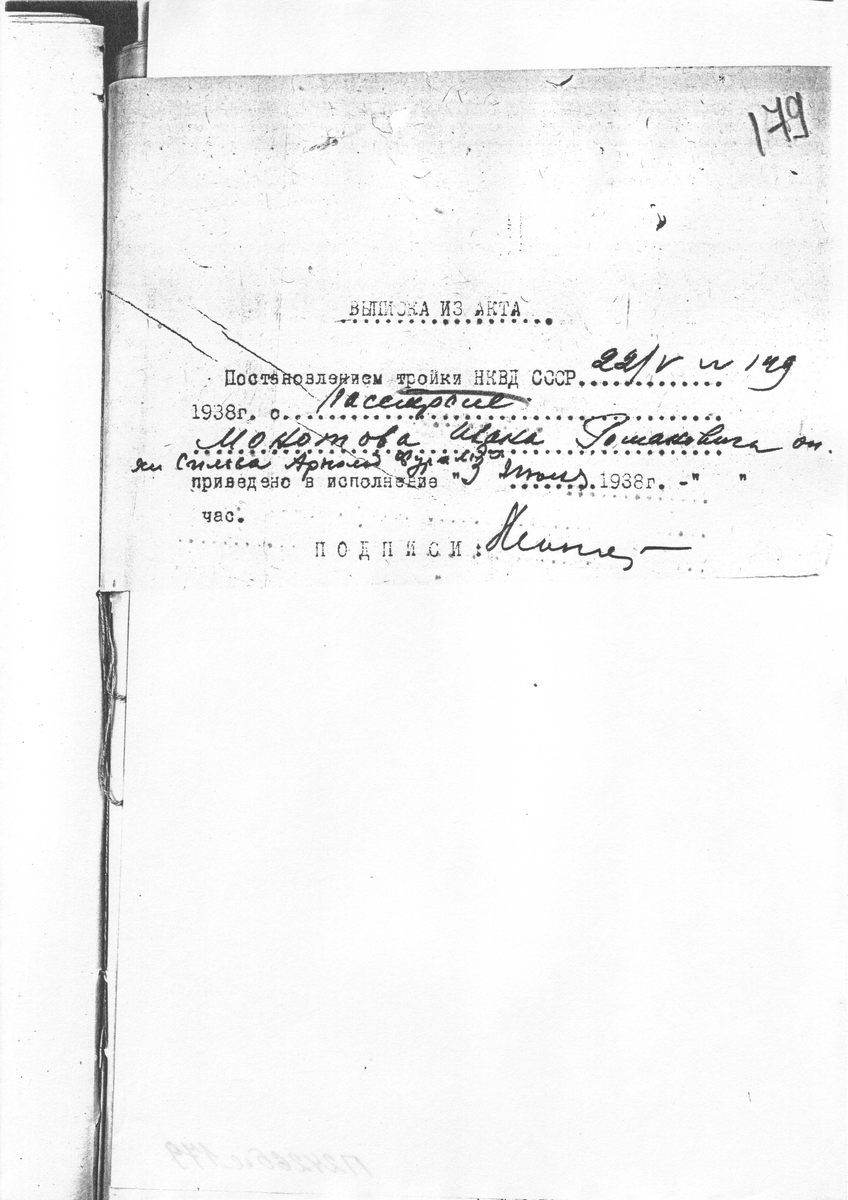 179
ВЫПИСКА ИЗ АКТА
Постановлением тройки НКВД СССР 22/V № 149
1938г. о расстреле
Молотова Ивана Романовича он
же Симса Арнольд
приведено в исполнение "3" июля 1938г. -" "
час.
ПОДПИСИ: